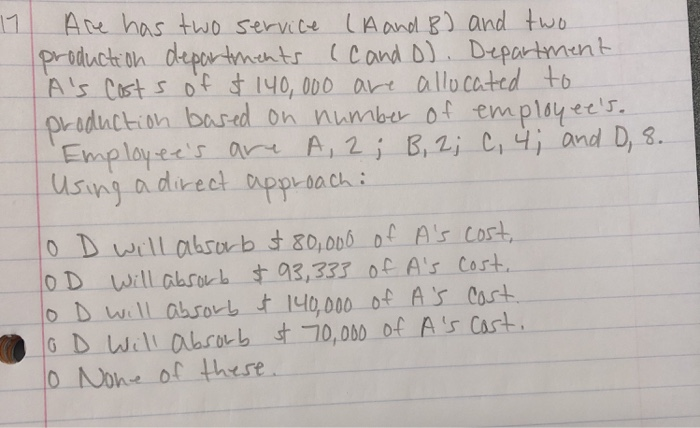 17 Ace has two service (A and B) and two
production departments (C and D). Department
A's Costs of $140,000 are allocated to
production based on number of employee's.
Employee's are A, 2; B, 2; C, 4; and D, 8.
Using a direct approach:
o D will absorb $80,000 of A's cost,
o D will absorb $93,333 of A's cost.
o D will absorb $140,000 of A's cost.
o D will absorb $70,000 of A's cost.
o None of these.